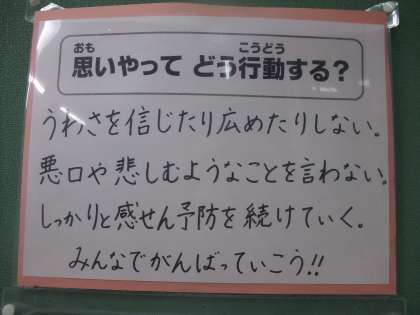 おも こうどう
思いやって どう行動する？
うわさを信じたり広めたりしない。
悪口や悲しむようなことを言わない。
しっかりと感せん予防を続けていく。
みんなでがんばっていこう!!